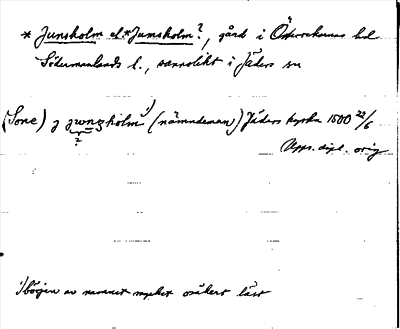 * Junsholm el. *Jumsholm?, gård i Österrekarne hd
Södermanlands l., sannolikt i Jäders sn
(Sone) j jwnzholm 1) (nämndeman) Jäders kyrka 1500 22/6
?
Upps. dipl. orig
1) början av namnet mycket osäkert läst